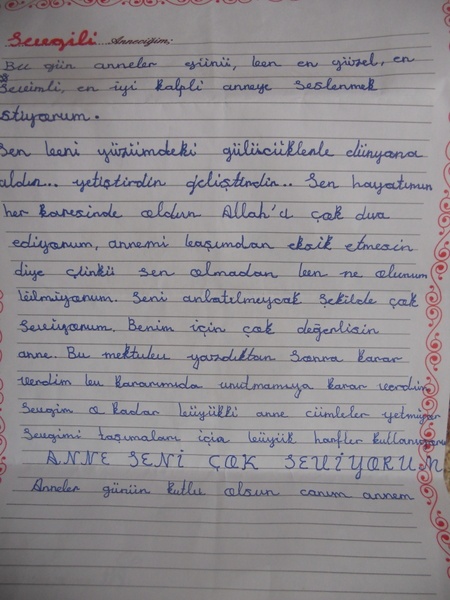 Sevgili Anneciğim;
Bu gün anneler günü, ben en güzel, en
Sevimli, en iyi kalpli anneye seslenmek
istiyorum.
Sen beni yüzümdeki gülücüklerle dünyana
aldın.. yetiştirdin geliştirdin.. Sen hayatımın
her karesinde oldun Allah'a çok dua
ediyorum, annemi başımdan eksik etmesin
diye çünkü sen olmadan ben ne olurum
bilmiyorum. Seni anlatılmeycak şekilde çok
Seviyorum. Benim için çok değerlisin
anne. Bu mektubu yazdıktan sonra karar
verdim bu kararımıda unutmamıya karar verdim
Sevgim o kadar büyükki anne cümleler yetmiyor
Sevgimi taşımaları için büyük harfler kullanıyorum
ANNE SENİ ÇOK SEVİYORUM
Anneler günün kutlu olsun canım annem